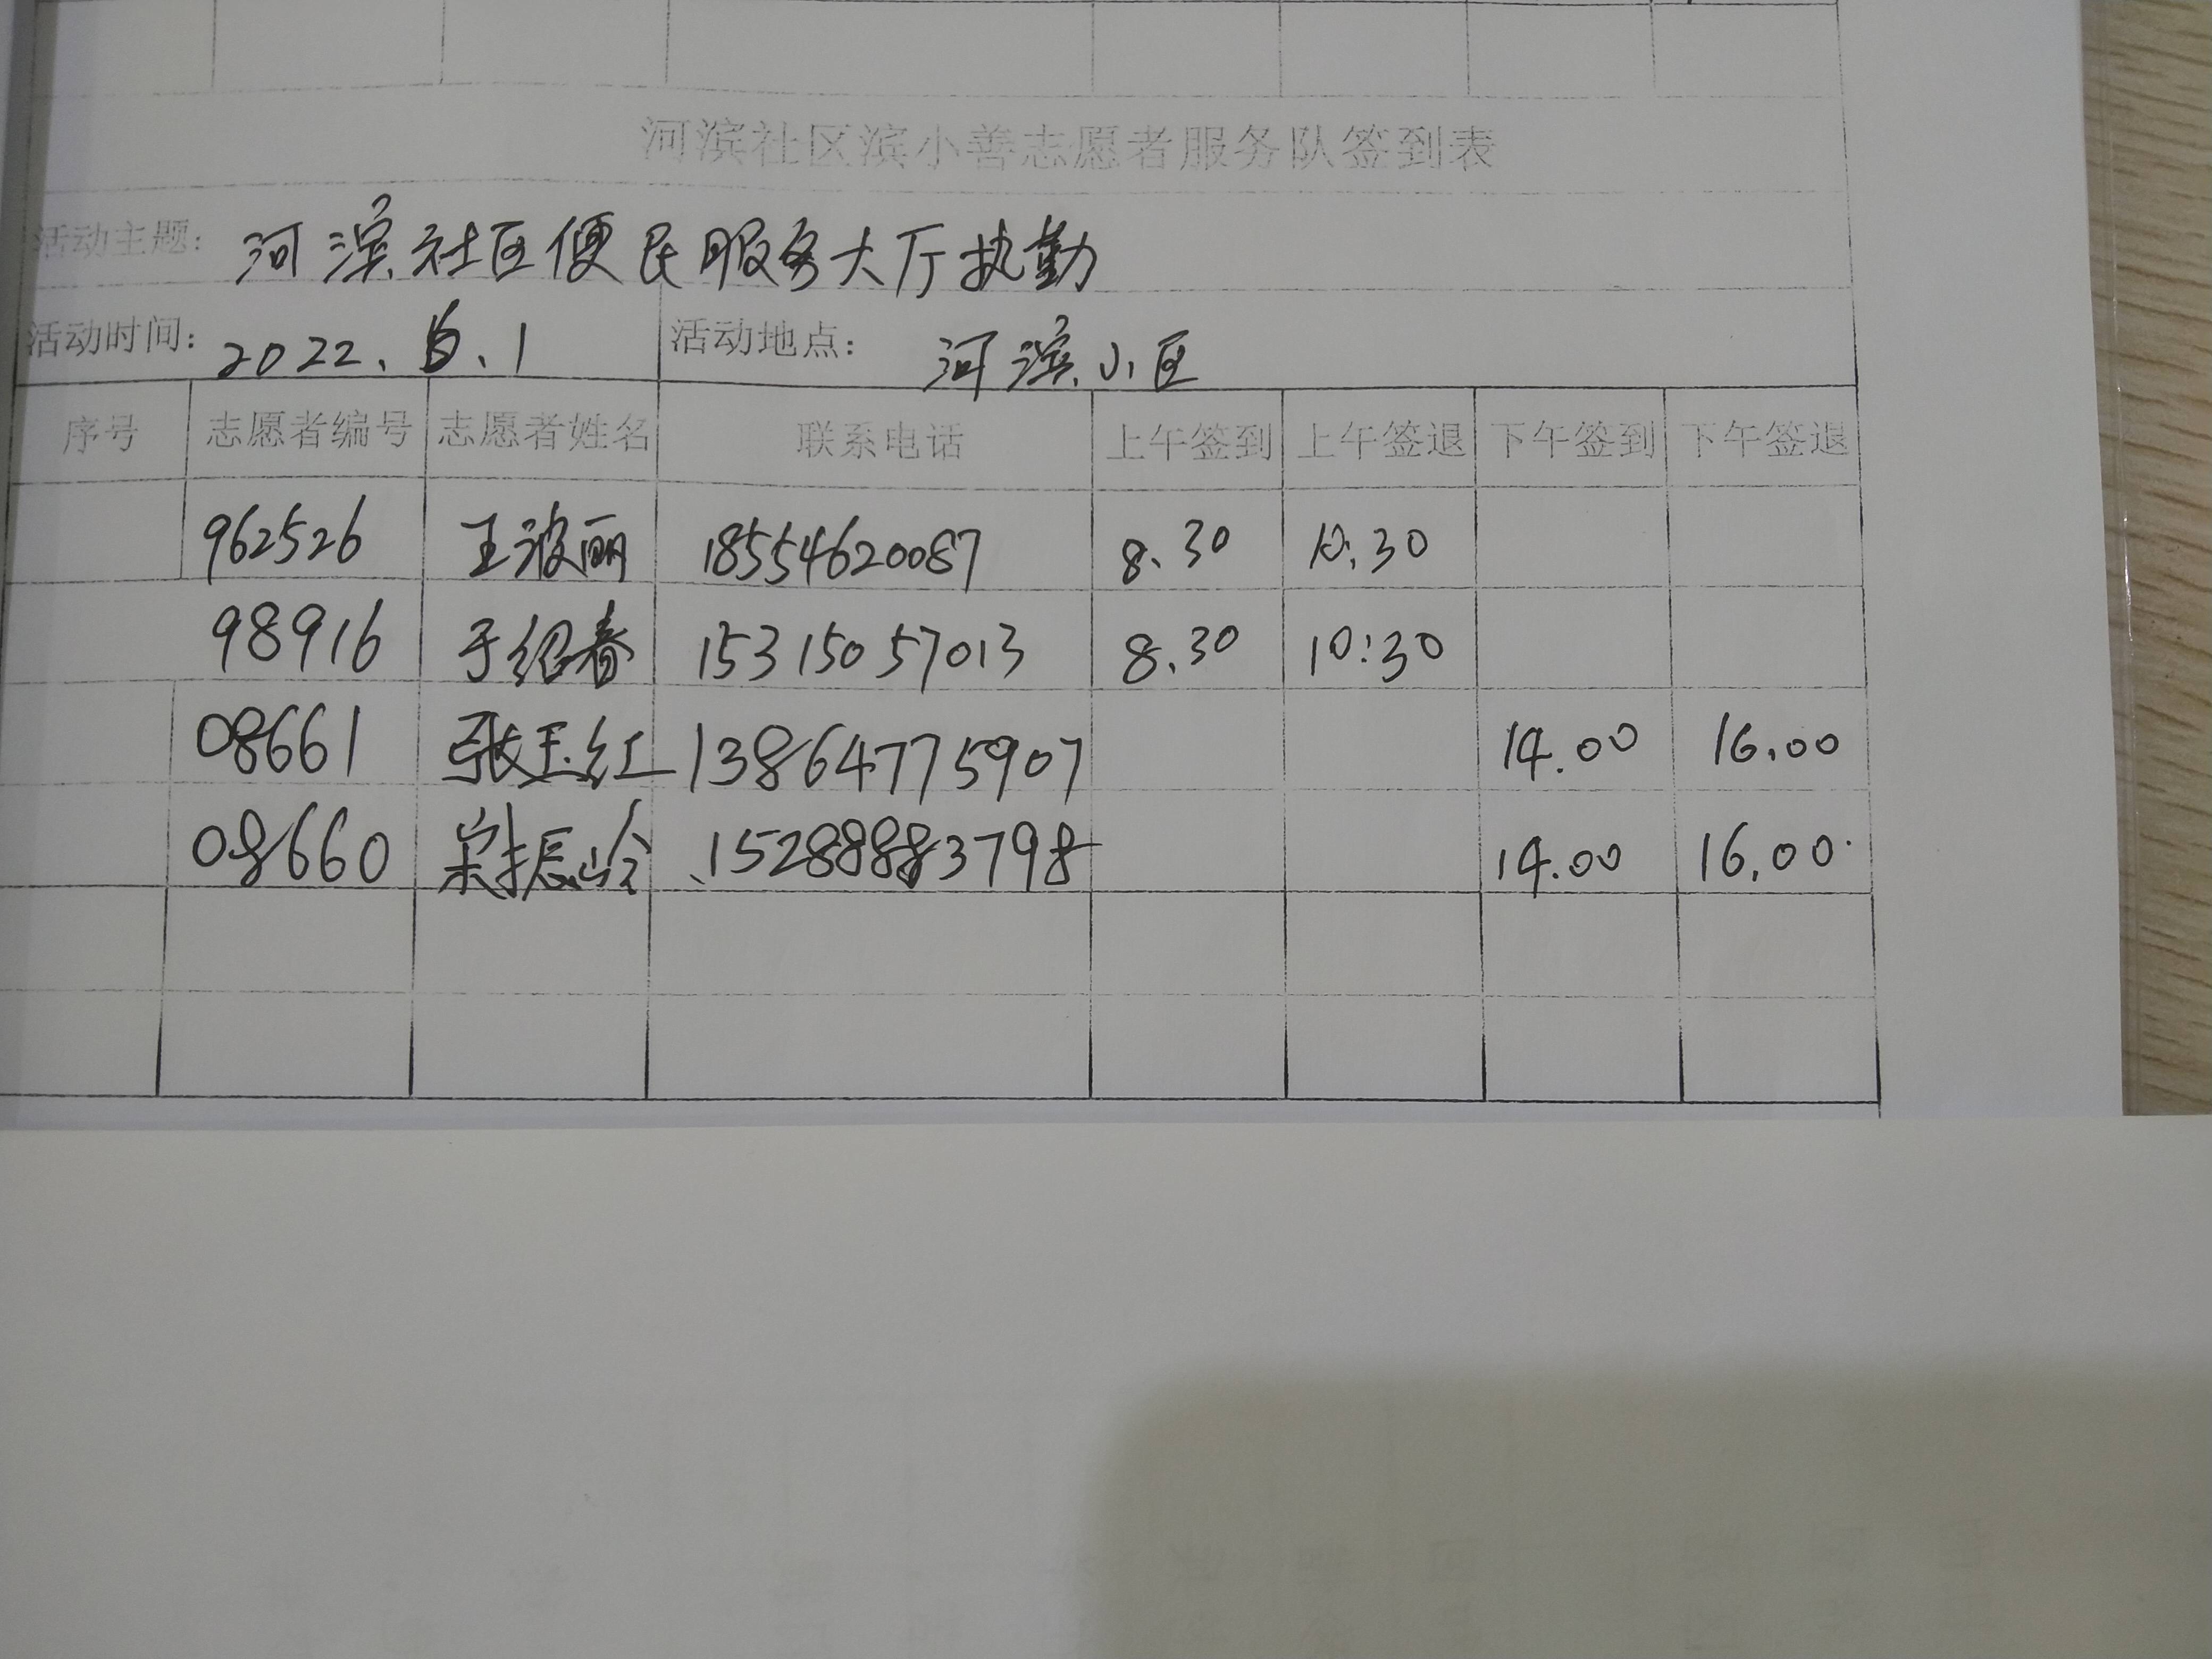 河滨社区滨小善志愿者服务队签到表
活动主题: 河滨社区便民服务大厅执勤
活动时间: 2022. .1 活动地点: 河滨小区
序号 志愿者编号 志愿者姓名 联系电话 上午签到 上午签退 下午签到 下午签退
962526 王波丽 18554620087 8.30 10.30
98916 于绍春 15315057013 8.30 10:30
08661 张玉红 13864775907 14.00 16.00
08660 宋振岭 15288883798 14.00 16.00